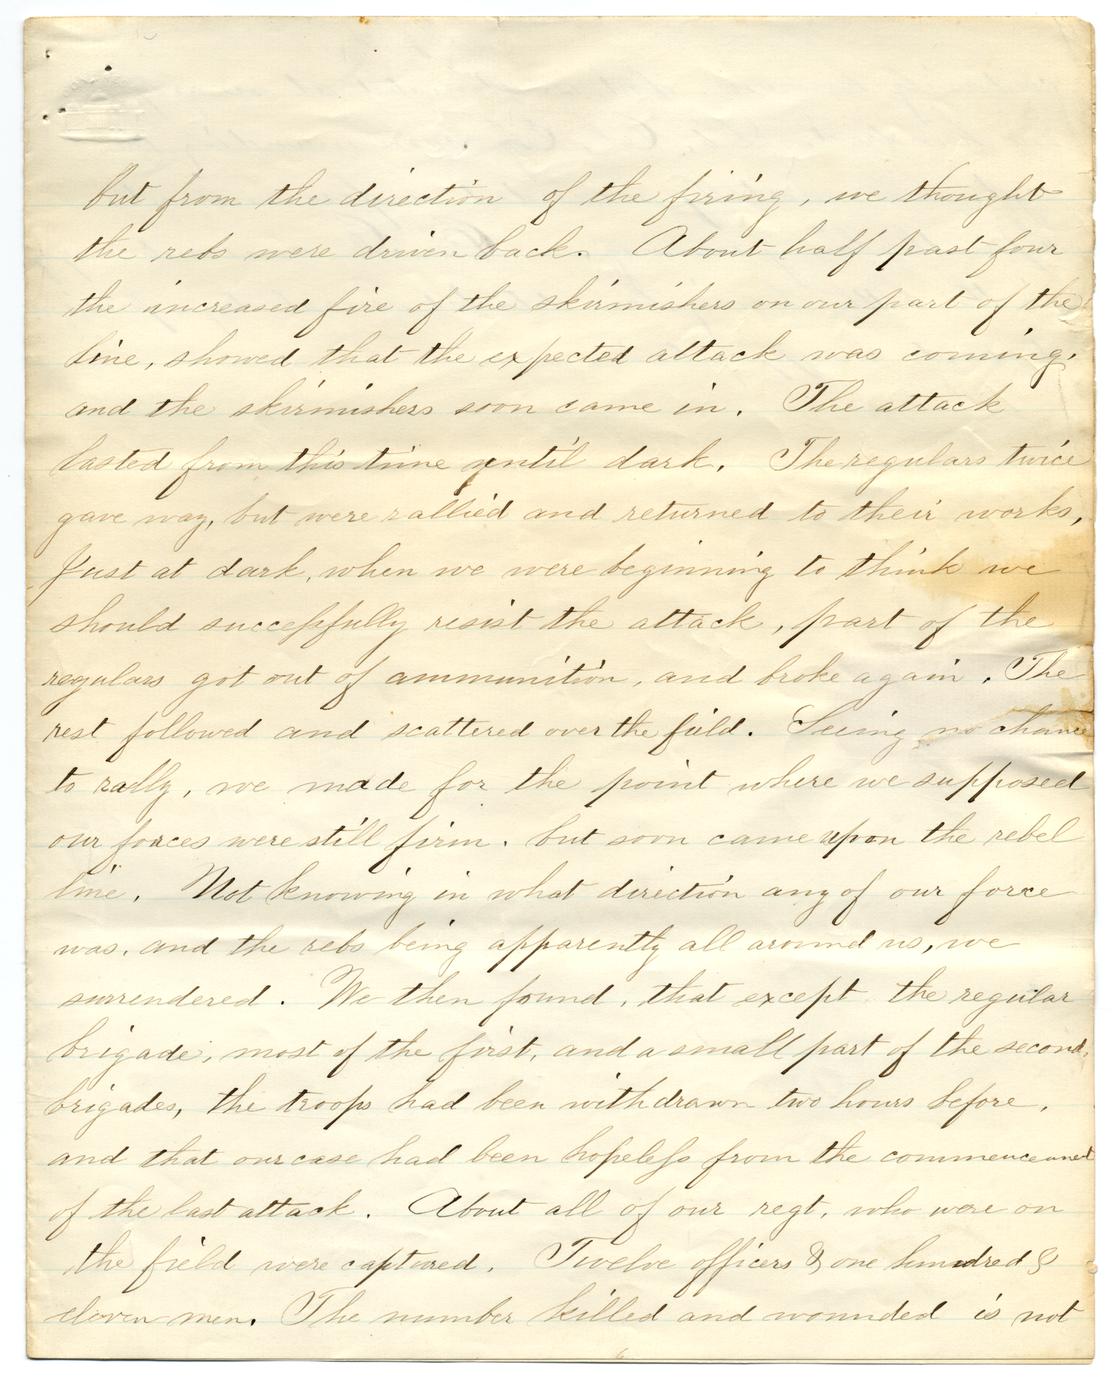 but from the direction of the firing, we thought
the rebs were driven back. About half past four
the increased fire of the skirmishers on our part of the
line, showed that the expected attack was coming,
and the skirmishers soon came in. The attack
lasted from this time until dark. The regulars twice
gave way, but were rallied and returned to their works,
Just at dark, when we were beginning to think we
should successfully resist the attack, part of the
regulars got out of ammunition, and broke again. The
rest followed and scattered over the field. Seeing no chance
to rally, we made for the point where we supposed
our forces were still firm. but soon came upon the rebel
line. Not knowing in what direction any of our force
was, and the rebs being apparently all around us, we
surrendered. We then found, that except the regular
brigade, most of the first, and a small part of the second,
brigades, the troops had been withdrawn two hours before,
and that our case had been hopeless from the commencement
of the last attack. About all of our regt. who were on
the field were captured. Twelve officers & one hundred &
eleven men. The number killed and wounded is not